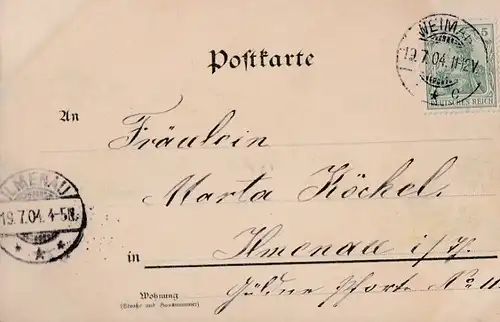 WEIMAR
19.7.04.11-12V.
* c
5
DEUTSCHES REICH
Postkarte
An
Fräulein
Marta Köchel.
ILMENAU
19.7.04.4-5N.
* * *
in Ilmenau i/Th.
Wohnung
(Straße und Hausnummer)
Güldne Pforte No 11